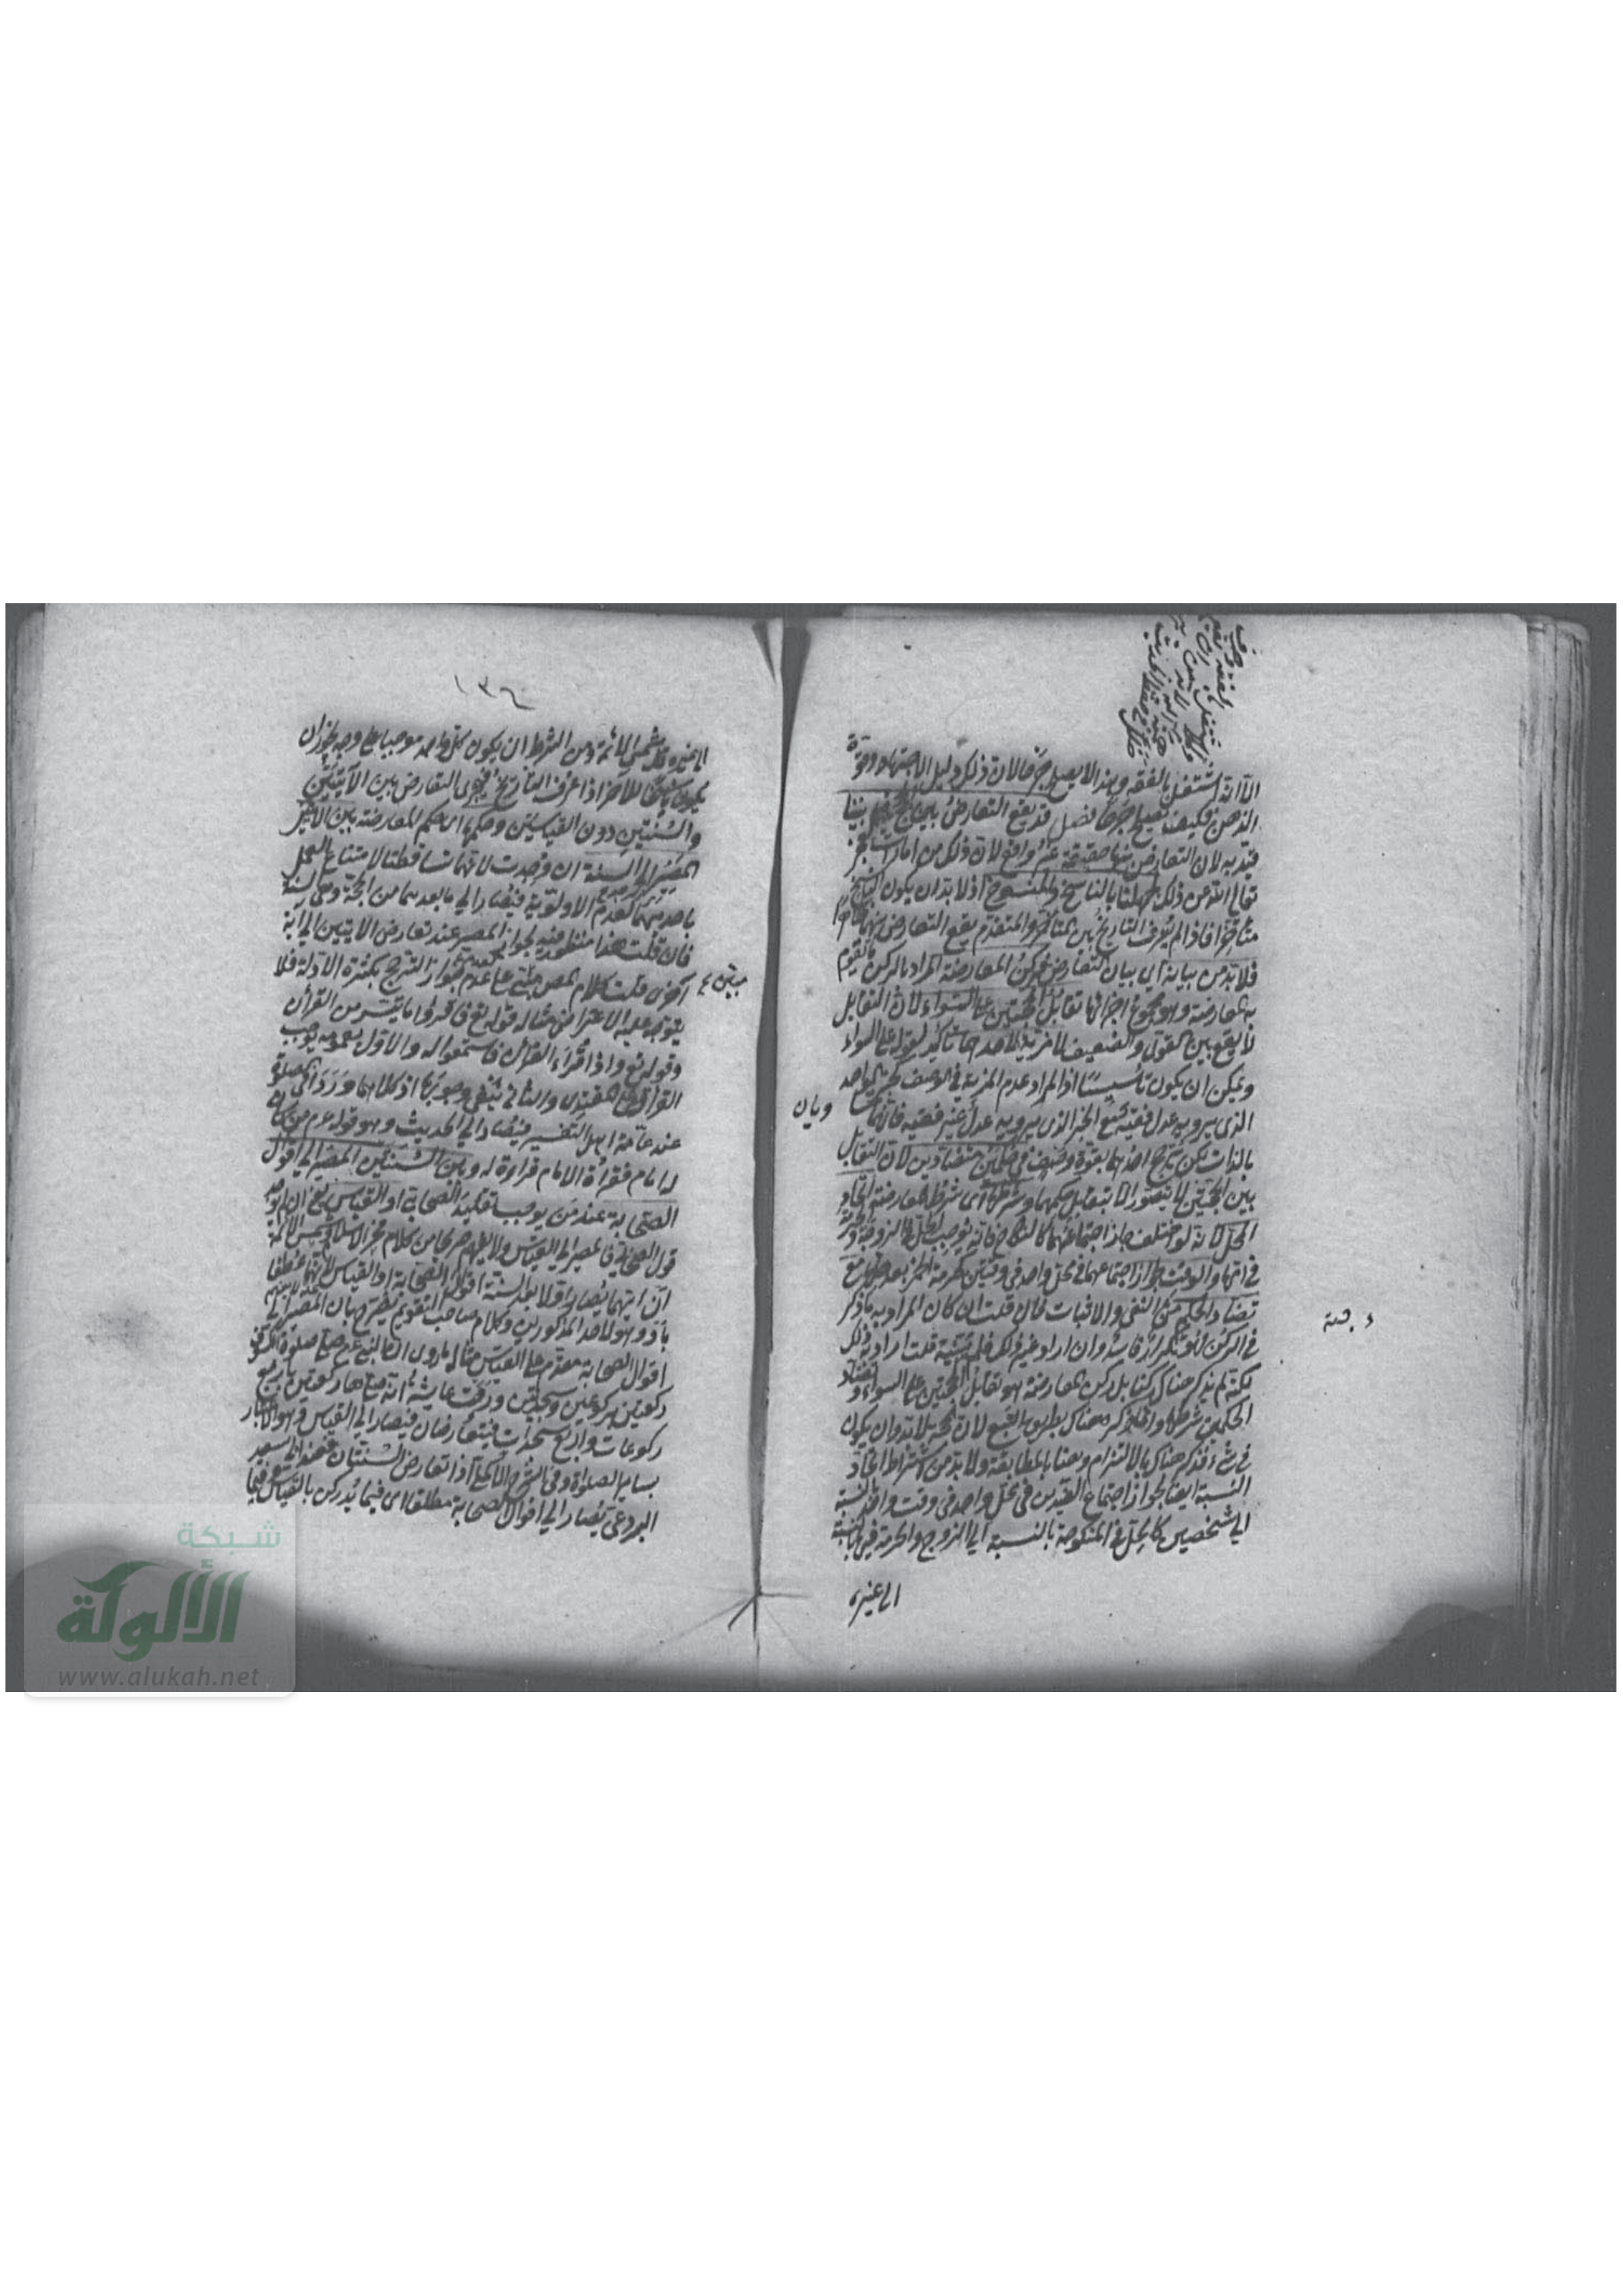 الا انه اشتغل بالفقه وهذا لا يصلح جرحا لان ذلك دليل الاجتهاد وقوة
الذهن فكيف يصلح جرحا فصل قد يقع التعارض بين الحجج فيما بيننا
قيد به لان التعارض بينها حقيقة غير واقع لان ذلك من امارات العجز
تعالى الله عن ذلك لجهلنا بالناسخ والمنسوخ اذ لا بد ان يكون الناسخ
متأخرا فاذا لم يعرف التاريخ بين المتأخر والمتقدم يقع التعارض بينهما ظاهرا
فلا بد من بيانه اي بيان التعارض فركن المعارضة المراد بالركن ما يقوم
به المعارضة وهو مجموع اجزائها تقابل الحجتين على السواء لان التقابل
لا يقع بين القوي والضعيف لا مزية لاحدهما تأكيد لقوله على السواء
ويمكن ان يكون تأسيسا اذ المراد عدم المزية في الوصف كخبر الواحد
الذي يرويه عدل فقيه مع الخبر الذي يرويه عدل غير فقيه فانهما
بالذات لكن ترجح احدهما بقوة وصف في حكمين متضادين لان التقابل
بين الحجتين لا يتصور الا بتقابل حكمهما وشرطها اي شرط المعارضة اتحاد
المحل لانه لو اختلف جاز اجتماعهما كالنكاح فانه يوجب الحل في الزوجة والحرمة
في امها والوقت لجواز اجتماعهما في محل واحد في وقتين كحرمة الخمر بعد حلها مع
تضاد الحكم مثل النفي والاثبات فان قلت ان كان المراد به ما ذكر
في الركن فهو تكرار فائدة وان اراد غير ذلك فلم يثبته قلت اراد به ذلك
لكنه لم يذكر هناك ركنا بل ركن المعارضة هو تقابل الحجتين على السواء وتضاد
الحكمين شرطها وانما ذكر هناك بطريق التبع لان الحجة لا بد وان يكون
في شيء فذكر هناك بالالتزام وهنا بالمطابقة ولا بد من اشتراط اتحاد
النسبة ايضا لجواز اجتماع الضدين في محل واحد في وقت واحد بالنسبة
الى شخصين كالحل في المنكوحة بالنسبة الى الزوج والحرمة فيها بالنسبة
الى غيره
١٣٦
الى غيره قال شمس الائمة ومن الشرط ان يكون كل واحد موجبا على وجه يجوز ان
يكون ناسخا للاخر اذا عرف التاريخ فيجري التعارض بين الآيتين
والسنتين دون القياسين وحكمها اي حكم المعارضة بين الآيتين
المصير الى السنة ان وجدت لانهما تساقطتا لامتناع العمل
باحديهما لعدم الاولوية فيصار الى ما بعدهما من الحجة وهي السنة
فان قلت هذا منظور فيه لجواز المصير عند تعارض الآيتين الى آية
اخرى قلت كلام المص مبني على عدم جواز الترجيح بكثرة الادلة فلا
يتوجه عليه الاعتراض مثاله قوله تع فاقرؤا ما تيسر من القرآن
وقوله تع واذا قرئ القرآن فاستمعوا له والاول بعمومه يوجب
القراءة على المقتدي والثاني ينفي وجوبها اذ كلاهما وردا في الصلوة
عند عامة اهل التفسير فيصار الى الحديث وهو قوله عم من كان
له امام فقراءة الامام قراءة له وبين السنتين المصير الى اقوال
الصحابة عند من يوجب تقليد الصحابي او القياس يعني ان لم يوجد
قول الصحابي فالمصير الى القياس ولا يفهم صريحا من كلام فخر الاسلام وشمس الائمة
ان ايهما يصار اولا بعد السنة اقوال الصحابة او القياس لانهما عطفا
باو وهو لاحد المذكورين وكلام صاحب التقويم يصرح بان المصير الى
اقوال الصحابة مقدم على القياس مثاله ما روي ان النبي عم صلى صلوة الكسوف
ركعتين بركوعين وسجدتين وروت عايشة انه صلاها ركعتين باربع
ركوعات واربع سجدات فيتعارضان فيصار الى القياس وهو الاعتبار
بسائر الصلوة وفي الشرح الاكملي اذا تعارض السنتان فعند ابي سعيد
البردعي يصار الى اقوال الصحابة مطلقا اي فيما يدرك بالقياس وفيما
شبكة
الألوكة
www.alukah.net